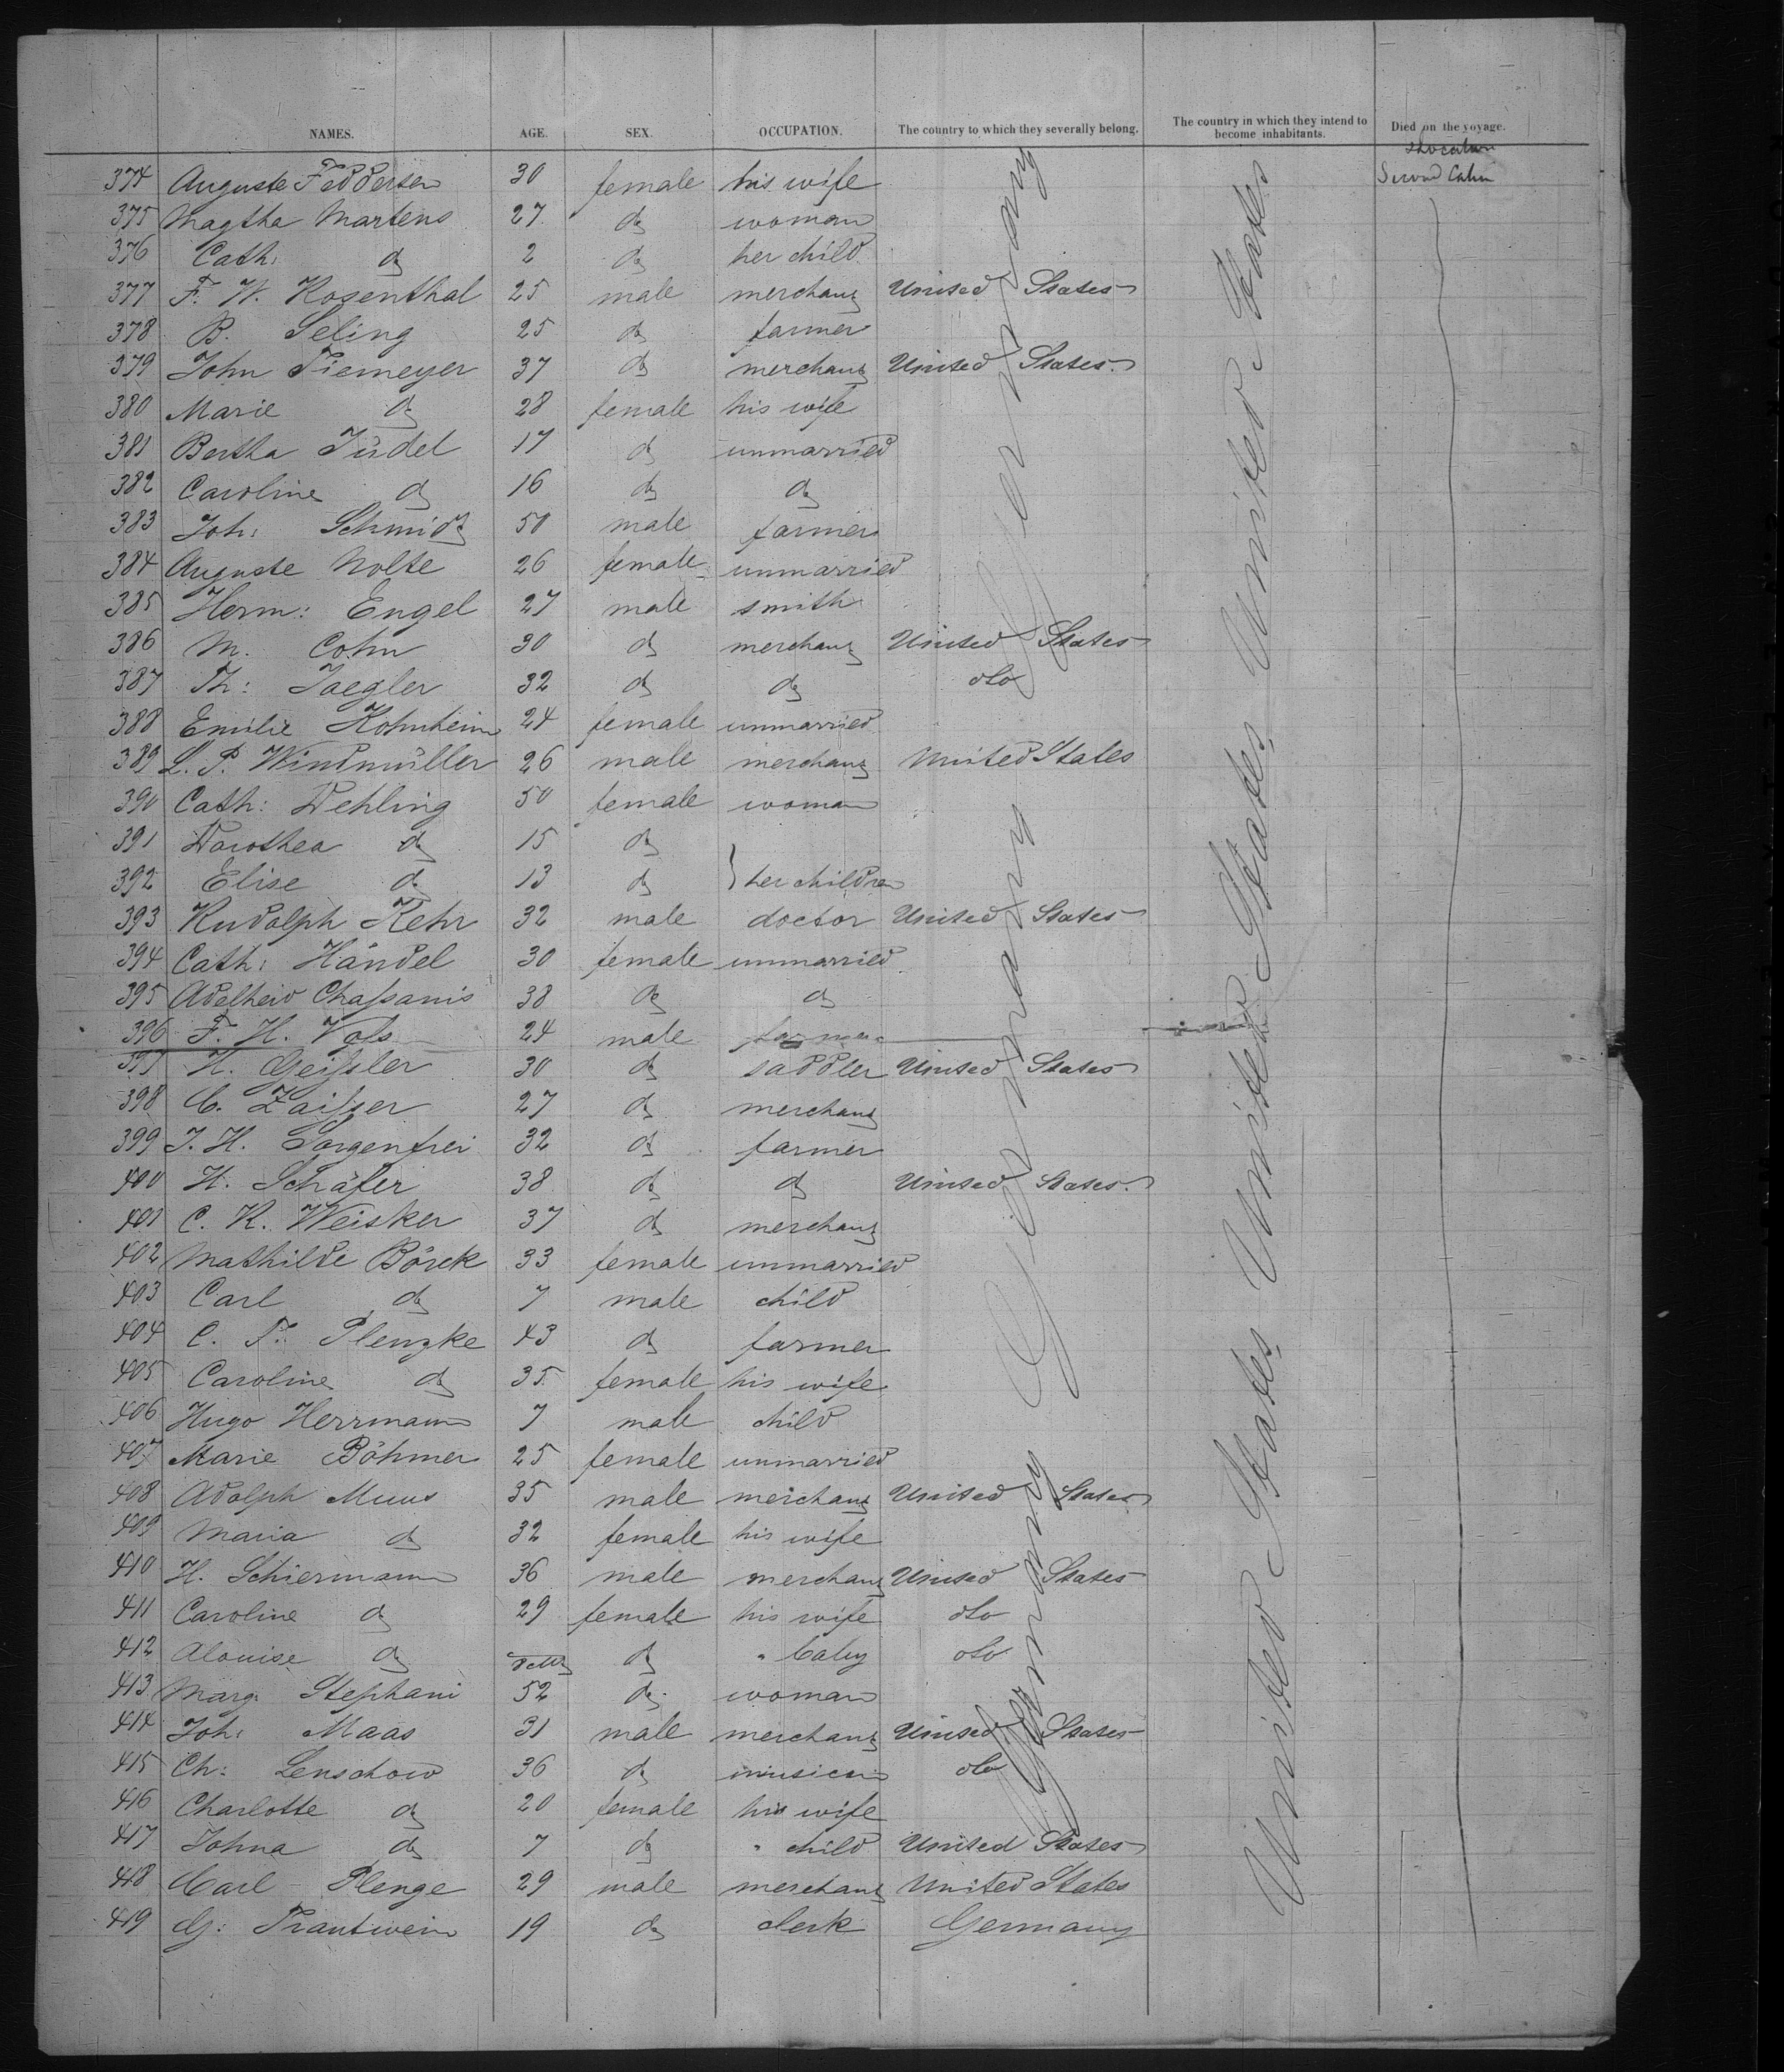 NAMES. AGE. SEX. OCCUPATION. The country to which they severally belong. The country in which they intend to become inhabitants. Died on the voyage.
Second Cabin
374 Auguste Feddersen 30 female his wife
375 Magtha Martens 27 do woman
376 Cath: do 2 do her child
377 F. W. Rosenthal 25 male merchant United States
378 B. Seling 25 do farmer
379 John Tiemeyer 37 do merchant United States
380 Marie do 28 female his wife
381 Bertha Jüdel 17 do unmarried
382 Caroline do 16 do do
383 Joh: Schmidt 50 male farmer
384 Auguste Nolte 26 female unmarried
385 Herm: Engel 27 male smith
386 M. Cohn 30 do merchant United States
387 Th: Jaegler 32 do do do
388 Emilie Kohnheim 24 female unmarried
389 L. P. Windmüller 26 male merchant United States
390 Cath: Wehling 50 female woman
391 Dorothea do 15 do
392 Elise do 13 do } her children
393 Rudolph Kehr 32 male doctor United States
394 Cath: Händel 30 female unmarried
395 Adelheid Chaſsanis 38 do do
396 F. H. Voſs 24 male farmer
397 H. Geiſsler 30 do saddler United States
398 C. Zaiſzer 27 do merchant
399 J. H. Sorgenfrei 32 do farmer
400 H. Schäfer 38 do do United States
401 C. R. Weisker 37 do merchant
402 Mathilde Börck 33 female unmarried
403 Carl do 7 male child
404 C. F. Plenzke 43 do farmer
405 Caroline do 35 female his wife
406 Hugo Herrmann 7 male child
407 Marie Böhmer 25 female unmarried
408 Adolph Muus 35 male merchant United States
409 Maria do 32 female his wife
410 H. Schiermann 36 male merchant United States
411 Caroline do 29 female his wife do
412 Alouise do do " baby do
413 Marg. Stephani 52 do woman
414 Joh: Maas 31 male merchant United States
415 Ch: Lenschow 36 do musician do
416 Charlotte do 20 female his wife
417 Johna do 7 do " child United States
418 Carl Plenge 29 male merchant United States
419 G: Trautwein 19 do clerk Germany
Germany
Germany
Germany
United States
United States
United States